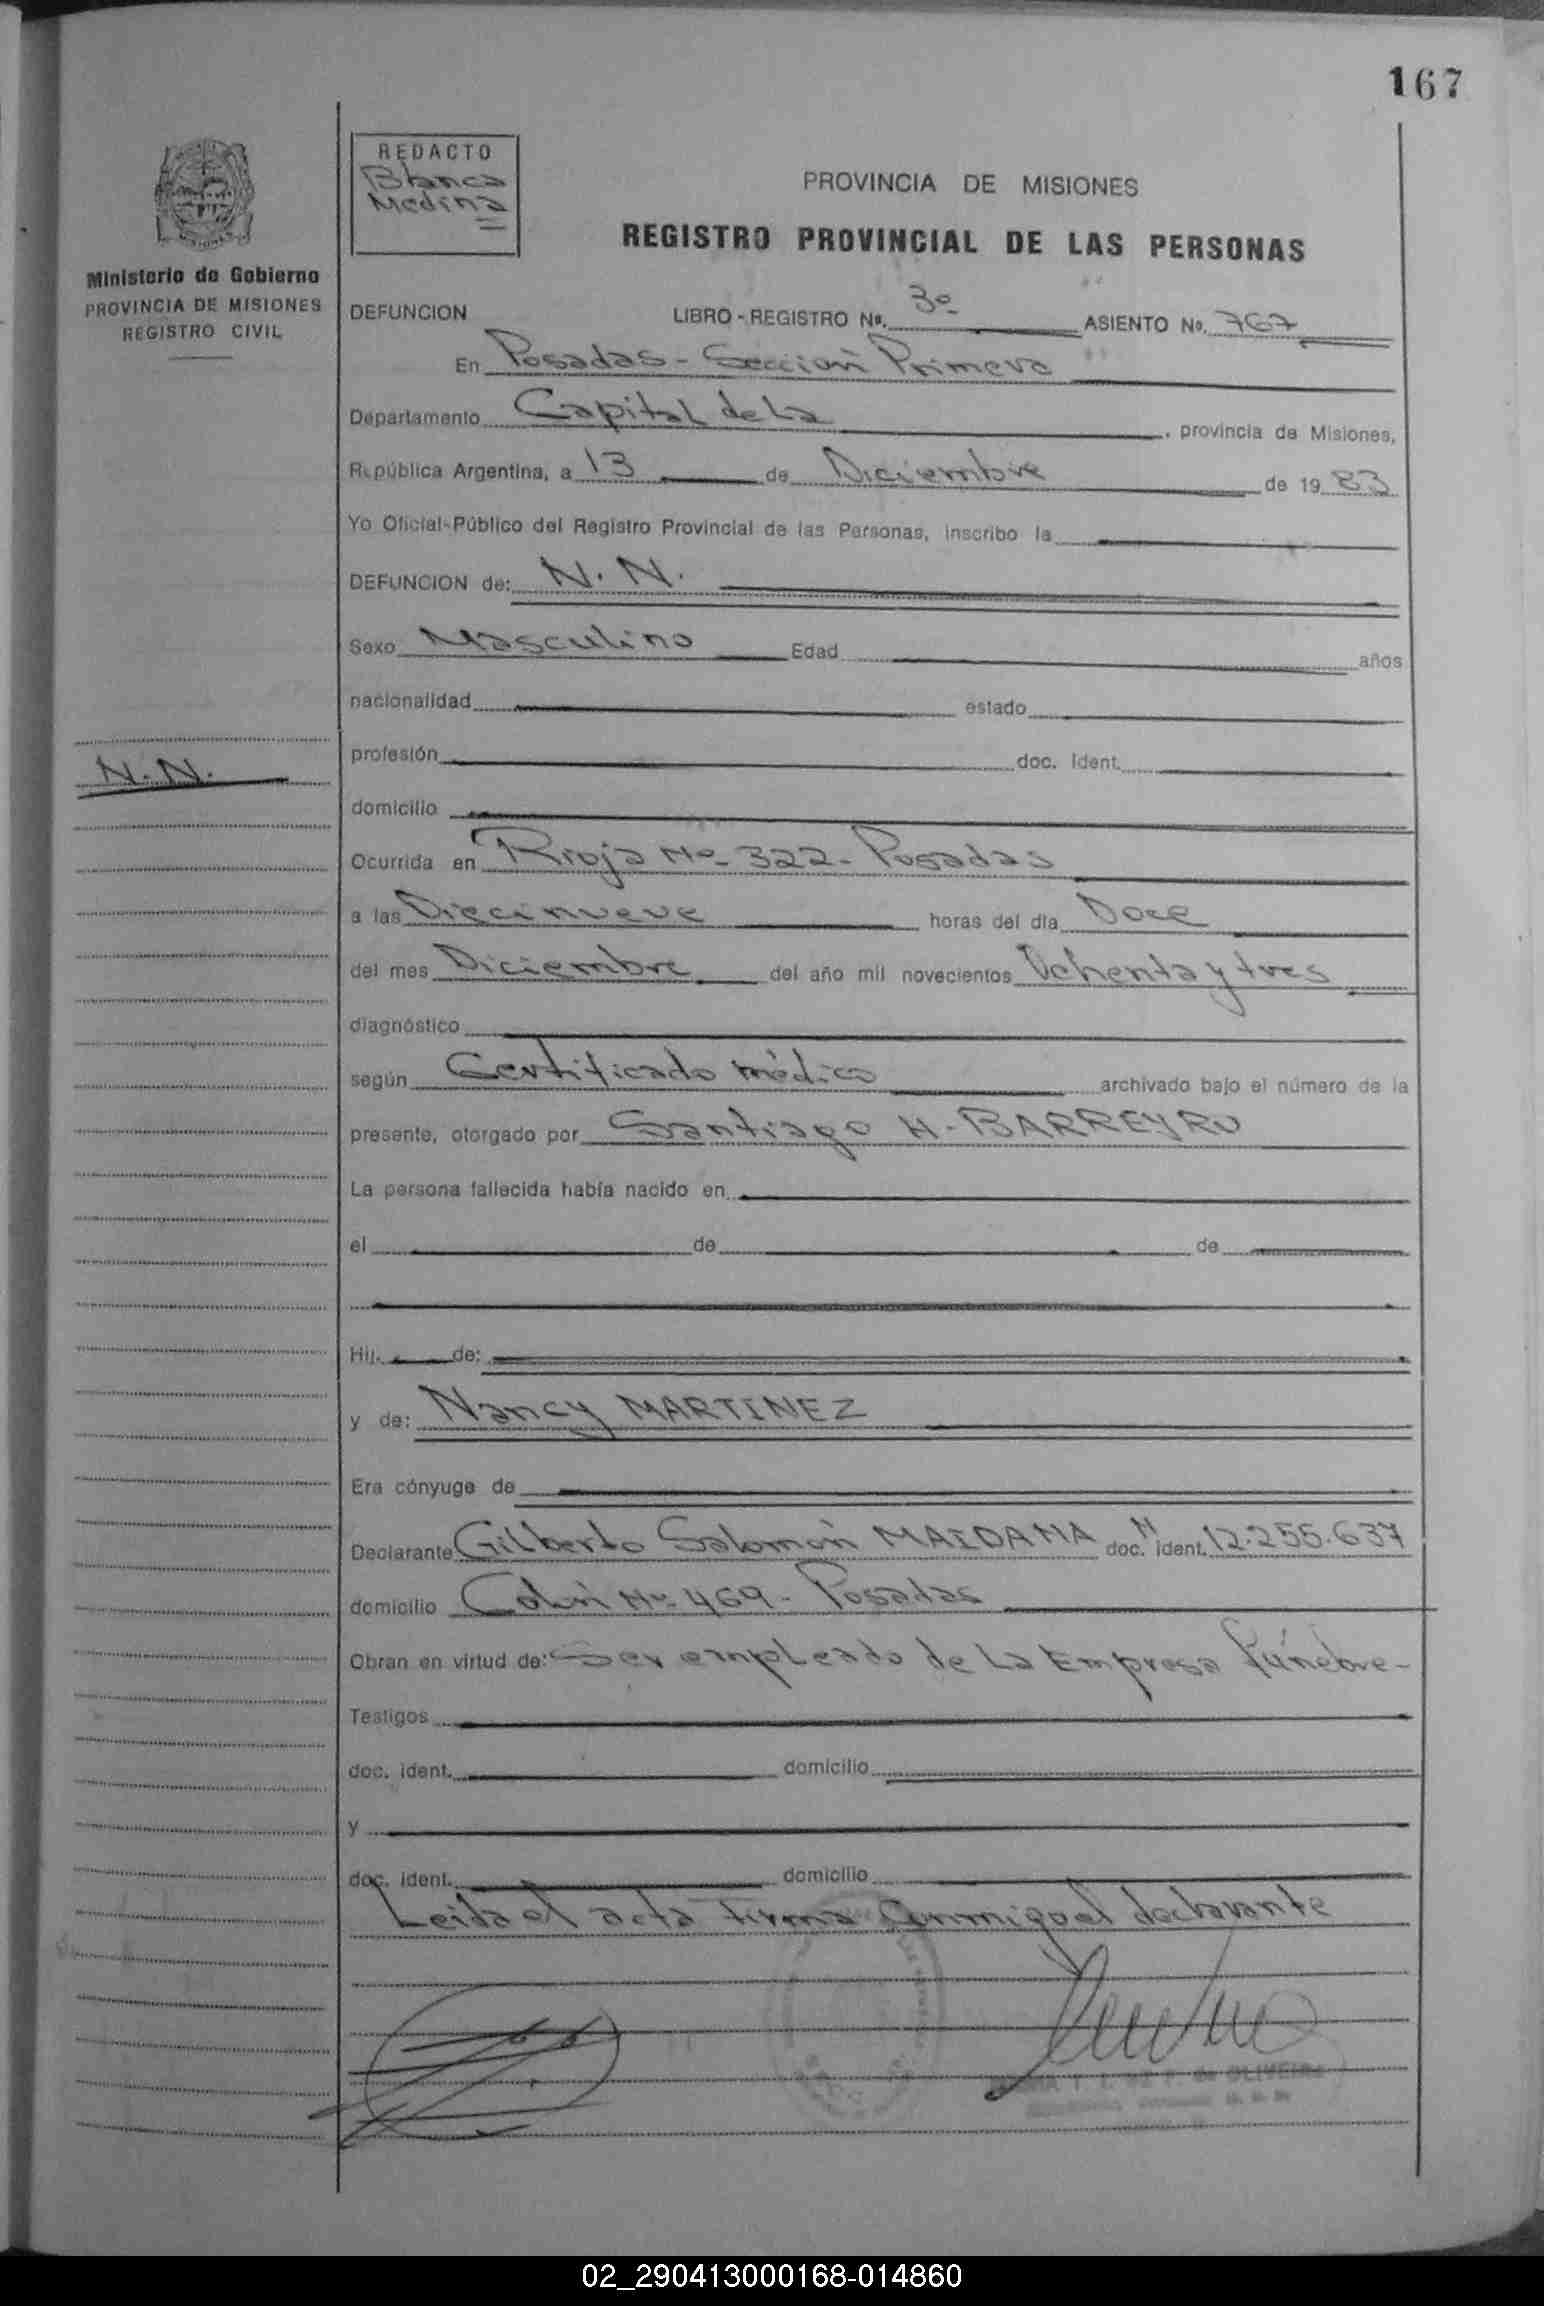 167
REDACTO
Blanca
Medina
PROVINCIA DE MISIONES
REGISTRO PROVINCIAL DE LAS PERSONAS
Ministerio de Gobierno
PROVINCIA DE MISIONES
REGISTRO CIVIL
DEFUNCION LIBRO-REGISTRO Nº. 3º ASIENTO Nº. 767
En Posadas - Sección Primera
Departamento Capital de La, provincia de Misiones,
República Argentina, a 13 de Diciembre de 1983
Yo Oficial-Público del Registro Provincial de las Personas, inscribo la
DEFUNCION de: N. N.
Sexo Masculino Edad años
nacionalidad estado
N. N.
profesión doc. Ident.
domicilio
Ocurrida en Rioja Nº 322- Posadas
a las Diecinueve horas del día Doce
del mes Diciembre del año mil novecientos Ochenta y tres
diagnóstico
según Certificado médico archivado bajo el número de la
presente, otorgado por Santiago H. BARREYRO
La persona fallecida había nacido en
el de de
Hij. de:
y de: Nancy MARTINEZ
Era cónyuge de
Declarante Gilberto Salomón MAIDANA doc. ident. 12.255.637
domicilio Colón Nº 469- Posadas
Obran en virtud de: Ser empleado de La Empresa fúnebre-
Testigos
doc. ident. domicilio
y
doc. ident. domicilio
Leida el acta firma Conmigo el declarante
OLIVEIRA
02_290413000168-014860